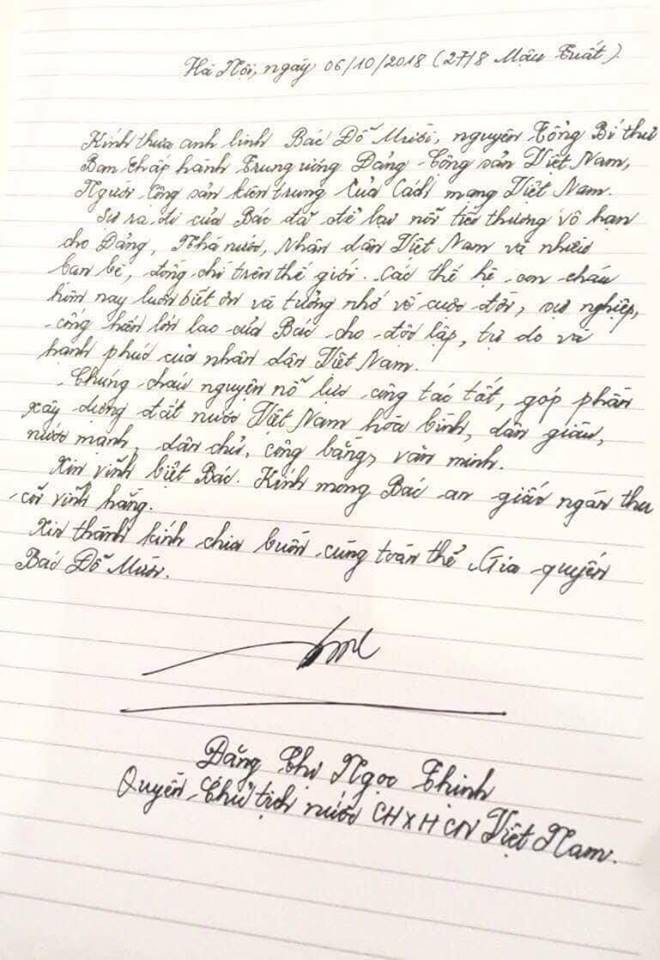 Hà Nội, ngày 06/10/2018 (27/8 Mậu Tuất).
Kính thưa anh linh Bác Đỗ Mười, nguyên Tổng Bí thư
Ban Chấp hành Trung ương Đảng Cộng sản Việt Nam,
Người Cộng sản kiên trung của Cách mạng Việt Nam.
Sự ra đi của Bác đã để lại nỗi tiếc thương vô hạn
cho Đảng, Nhà nước, Nhân dân Việt Nam và nhiều
bạn bè, đồng chí trên thế giới. Các thế hệ con cháu
hôm nay luôn biết ơn và tưởng nhớ về cuộc đời, sự nghiệp,
công hiến lớn lao của Bác cho độc lập, tự do và
hạnh phúc của nhân dân Việt Nam.
Chúng cháu nguyện nỗ lực công tác tốt, góp phần
xây dựng đất nước Việt Nam hòa bình, dân giàu,
nước mạnh, dân chủ, công bằng, văn minh.
Xin vĩnh biệt Bác. Kính mong Bác an giấc ngàn thu
cõi vĩnh hằng.
Xin thành kính chia buồn cùng toàn thể Gia quyến
Bác Đỗ Mười.
Đặng Thị Ngọc Thịnh
Quyền Chủ tịch nước CHXHCN Việt Nam.